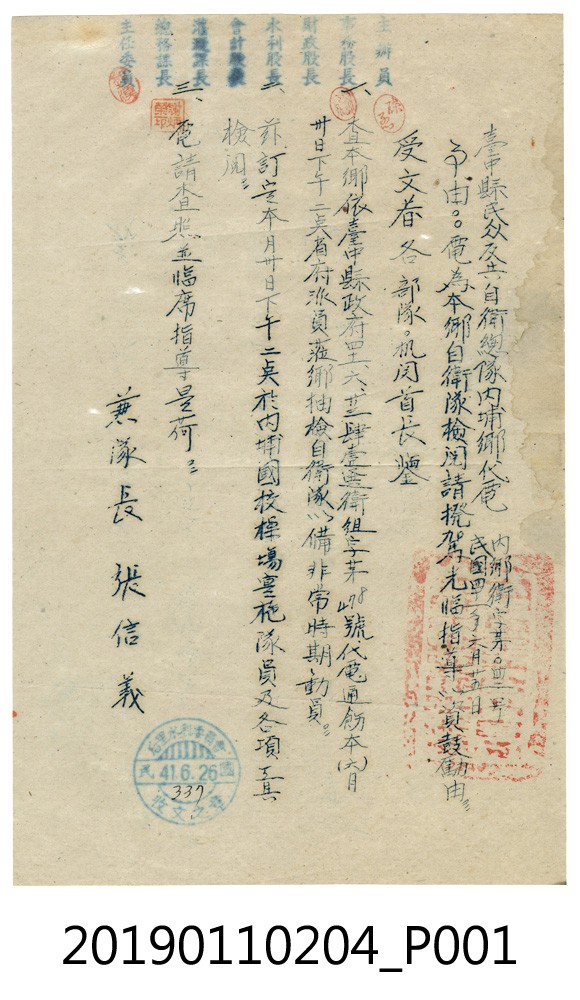 臺中縣民众反共自衛總隊内埔鄉代電
内鄉衛字苐〇四二号
民國四一年六月廿五日
事由。。電為本鄉自衛隊檢閱請撥駕光臨指導以資鼓勵由〻
受文者各部隊。机関首長鑒
一、查本鄉依臺中縣政府四一、六、廿三肆壹亞衛組字苐498號代電通飭本(六)月
卅日下午二点省府派員蒞鄉抽檢自衛隊以備非常時期動員〻
二、茲訂定本月卅日下午二点於内埔國校操場實施隊員及各項工具
檢閱〻
三、電請查照並臨席指導是荷〻
兼隊長 張信義
主辦員
事務股長
財政股長
水利股長
會計股長
灌溉課長
總務課長
主任委員
后里水利委員會
民 41.6.26 國
337
收文之章
20190110204_P001